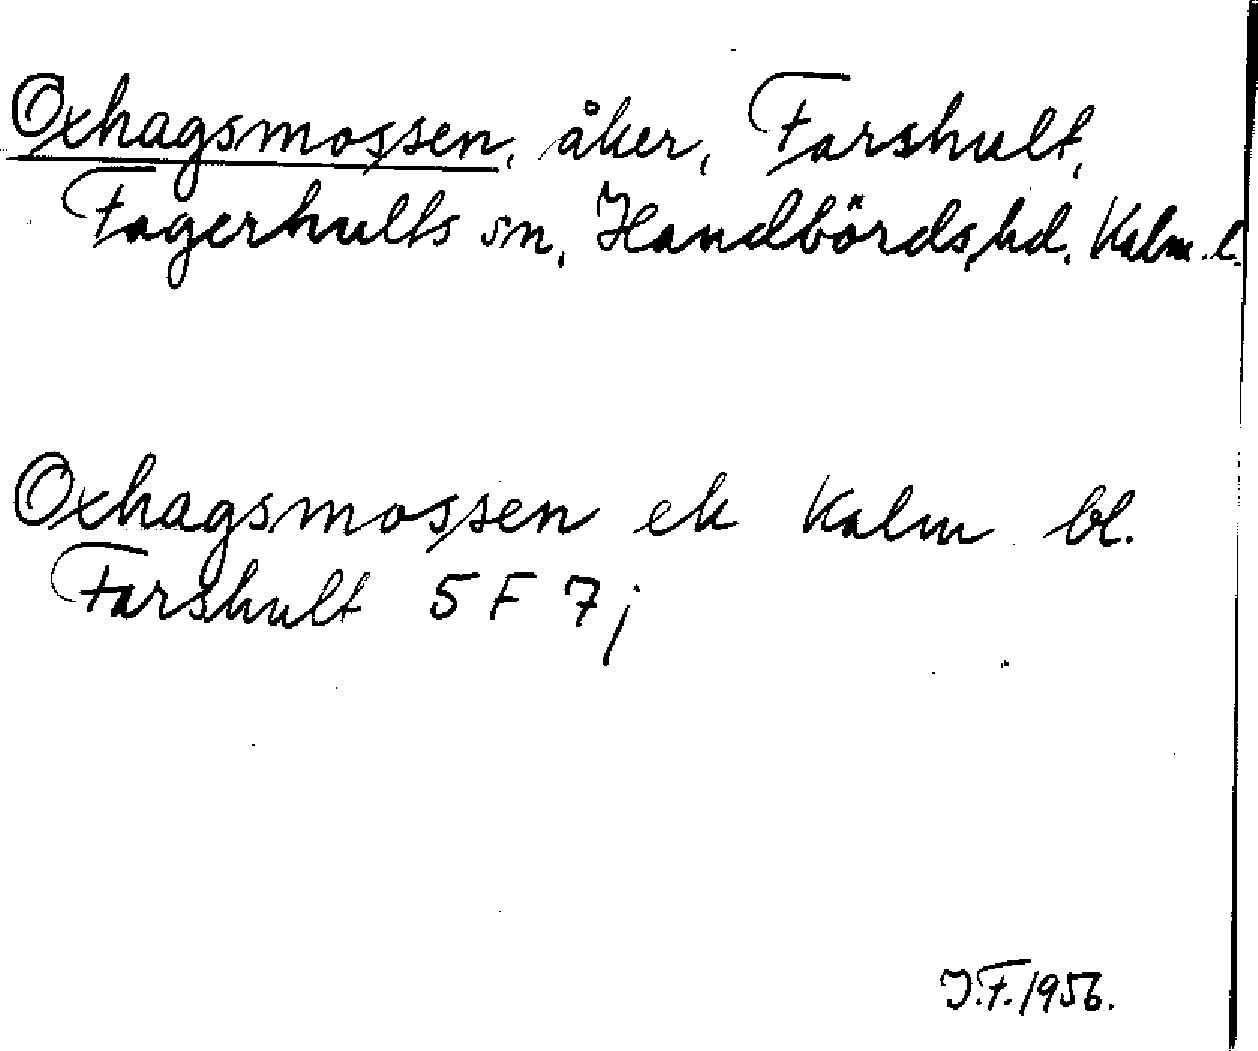 Oxhagsmossen, åker, Farshult,
Fagerhults sn, Handbörds hd, Kalm. l.
Oxhagsmossen ek Kalm bl.
Farshult 5 F 7 j
J.F. 1956.